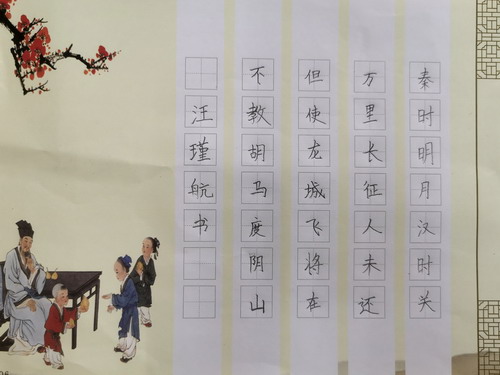 秦时明月汉时关
万里长征人未还
但使龙城飞将在
不教胡马度阴山
汪瑾航书